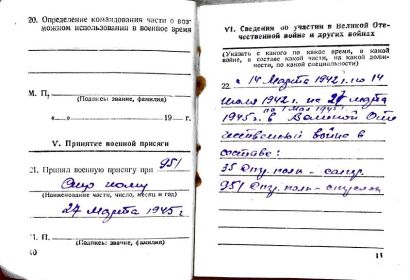 20. Определение командования части о воз-
можном использовании в военное время
М. П.
(Подпись: звание, фамилия)
« » 19 — г.
V. Принятие военной присяги
21. Принял военную присягу при 951
полку
(Наименование части, число, месяц и год)
27 Марта 1945 г
М. П.
(Подпись: звание, фамилия)
10
VI. Сведения об участии в Великой Оте-
чественной войне и других войнах
(Указать с какого по какое время, в какой
войне, в составе какой части, на какой долж-
ности, по какой специальности)
22. с 14 Марта 1942 г. по 14
июля 1942 г. с 27 марта
по 1 мая 1945 г
1945 г. в Великой Оте
чественной войне в
составе:
35 полк -
951 полк -
11